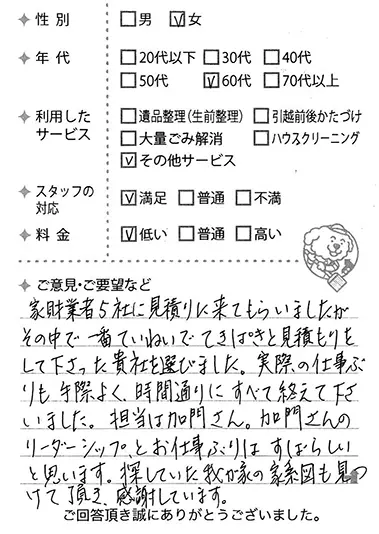 性別 □男 ☑女
年代 □20代以下 □30代 □40代
□50代 ☑60代 □70代以上
利用したサービス □遺品整理(生前整理) □引越前後かたづけ
□大量ごみ解消 □ハウスクリーニング
☑その他サービス
スタッフの対応 ☑満足 □普通 □不満
料金 ☑低い □普通 □高い
ご意見・ご要望など
家財業者5社に見積りに来てもらいましたが
その中で一番ていねいで てきぱきと見積もりを
して下さった貴社を選びました。実際の仕事ぶ
りも手際よく、時間通りに すべて終えて下さ
いました。担当は加門さん。加門さんの
リーダーシップ、とお仕事ぶりは すばらしい
と思います。探していた我が家の家系図も見つ
けて頂き、感謝しています。
ご回答頂き誠にありがとうございました。